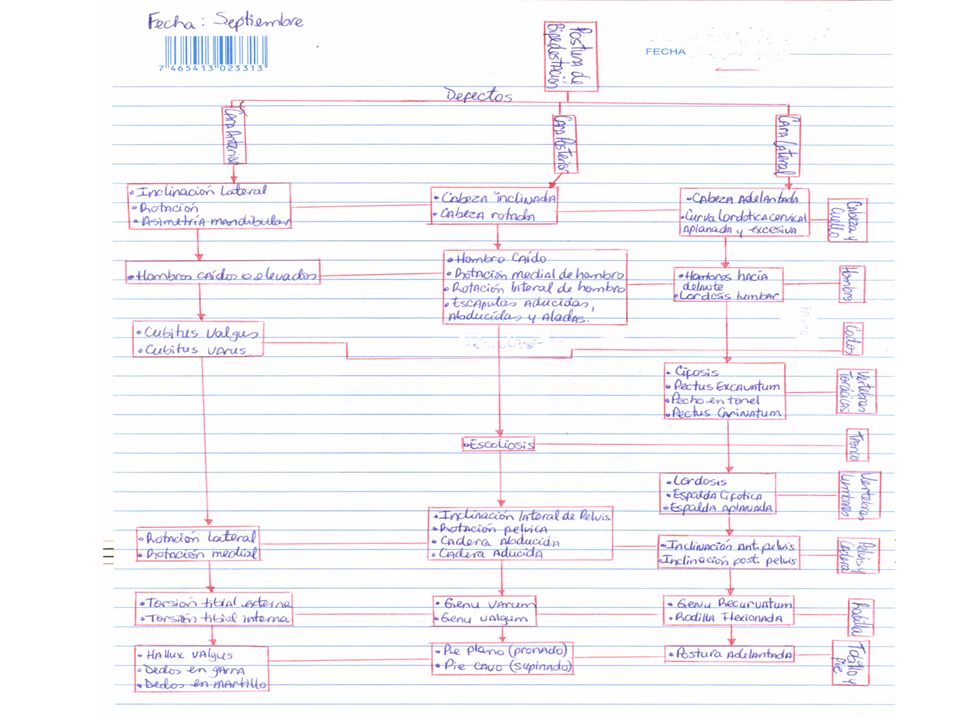 Fecha: Septiembre
7 465413 023313
Postura de
Bipedestación
FECHA
Defectos
Cara Anterior
Cara Posterior
Cara Lateral
• Inclinación Lateral
• Rotación
• Asimetría mandibular
• Cabeza inclinada
• Cabeza rotada
• Cabeza Adelantada
• Curva Lordotica cervical
Aplanada y excesiva
Cabeza y
Cuello
• Hombros caídos o elevados
• Hombro Caído
• Rotación medial de hombro
• Rotación lateral de hombro
• Escápulas Aducidas,
Abducidas y Aladas.
• Hombros hacia
delante
• Lordosis lumbar
Hombro
• Cubitus Valgus
• Cubitus varus
Codos
• Cifosis
• Pectus Excavatum
• Pecho en tonel
• Pectus Carinatum
Vertebras
Torácicas
• Escoliosis
Tronco
• Lordosis
• Espalda Cifotica
• Espalda Aplanada
Vertebras
Lumbares
• Rotación Lateral
• Rotación medial
• Inclinación lateral de Pelvis
• Rotación pelvica
• Cadera Abducida
• Cadera Aducida
• Inclinación Ant. pelvis
• Inclinacion post. pelvis
Pelvis y
Cadera
• Torsión tibial externa
• Torsión tibial interna
• Genu Varum
• Genu valgum
• Genu Recurvatum
• Rodilla Flexionada
Rodilla
• Hallux Valgus
• Dedos en garra
• Dedos en martillo
• Pie plano (pronado)
• Pie cavo (supinado)
• Postura Adelantada
Tobillo y
Pie